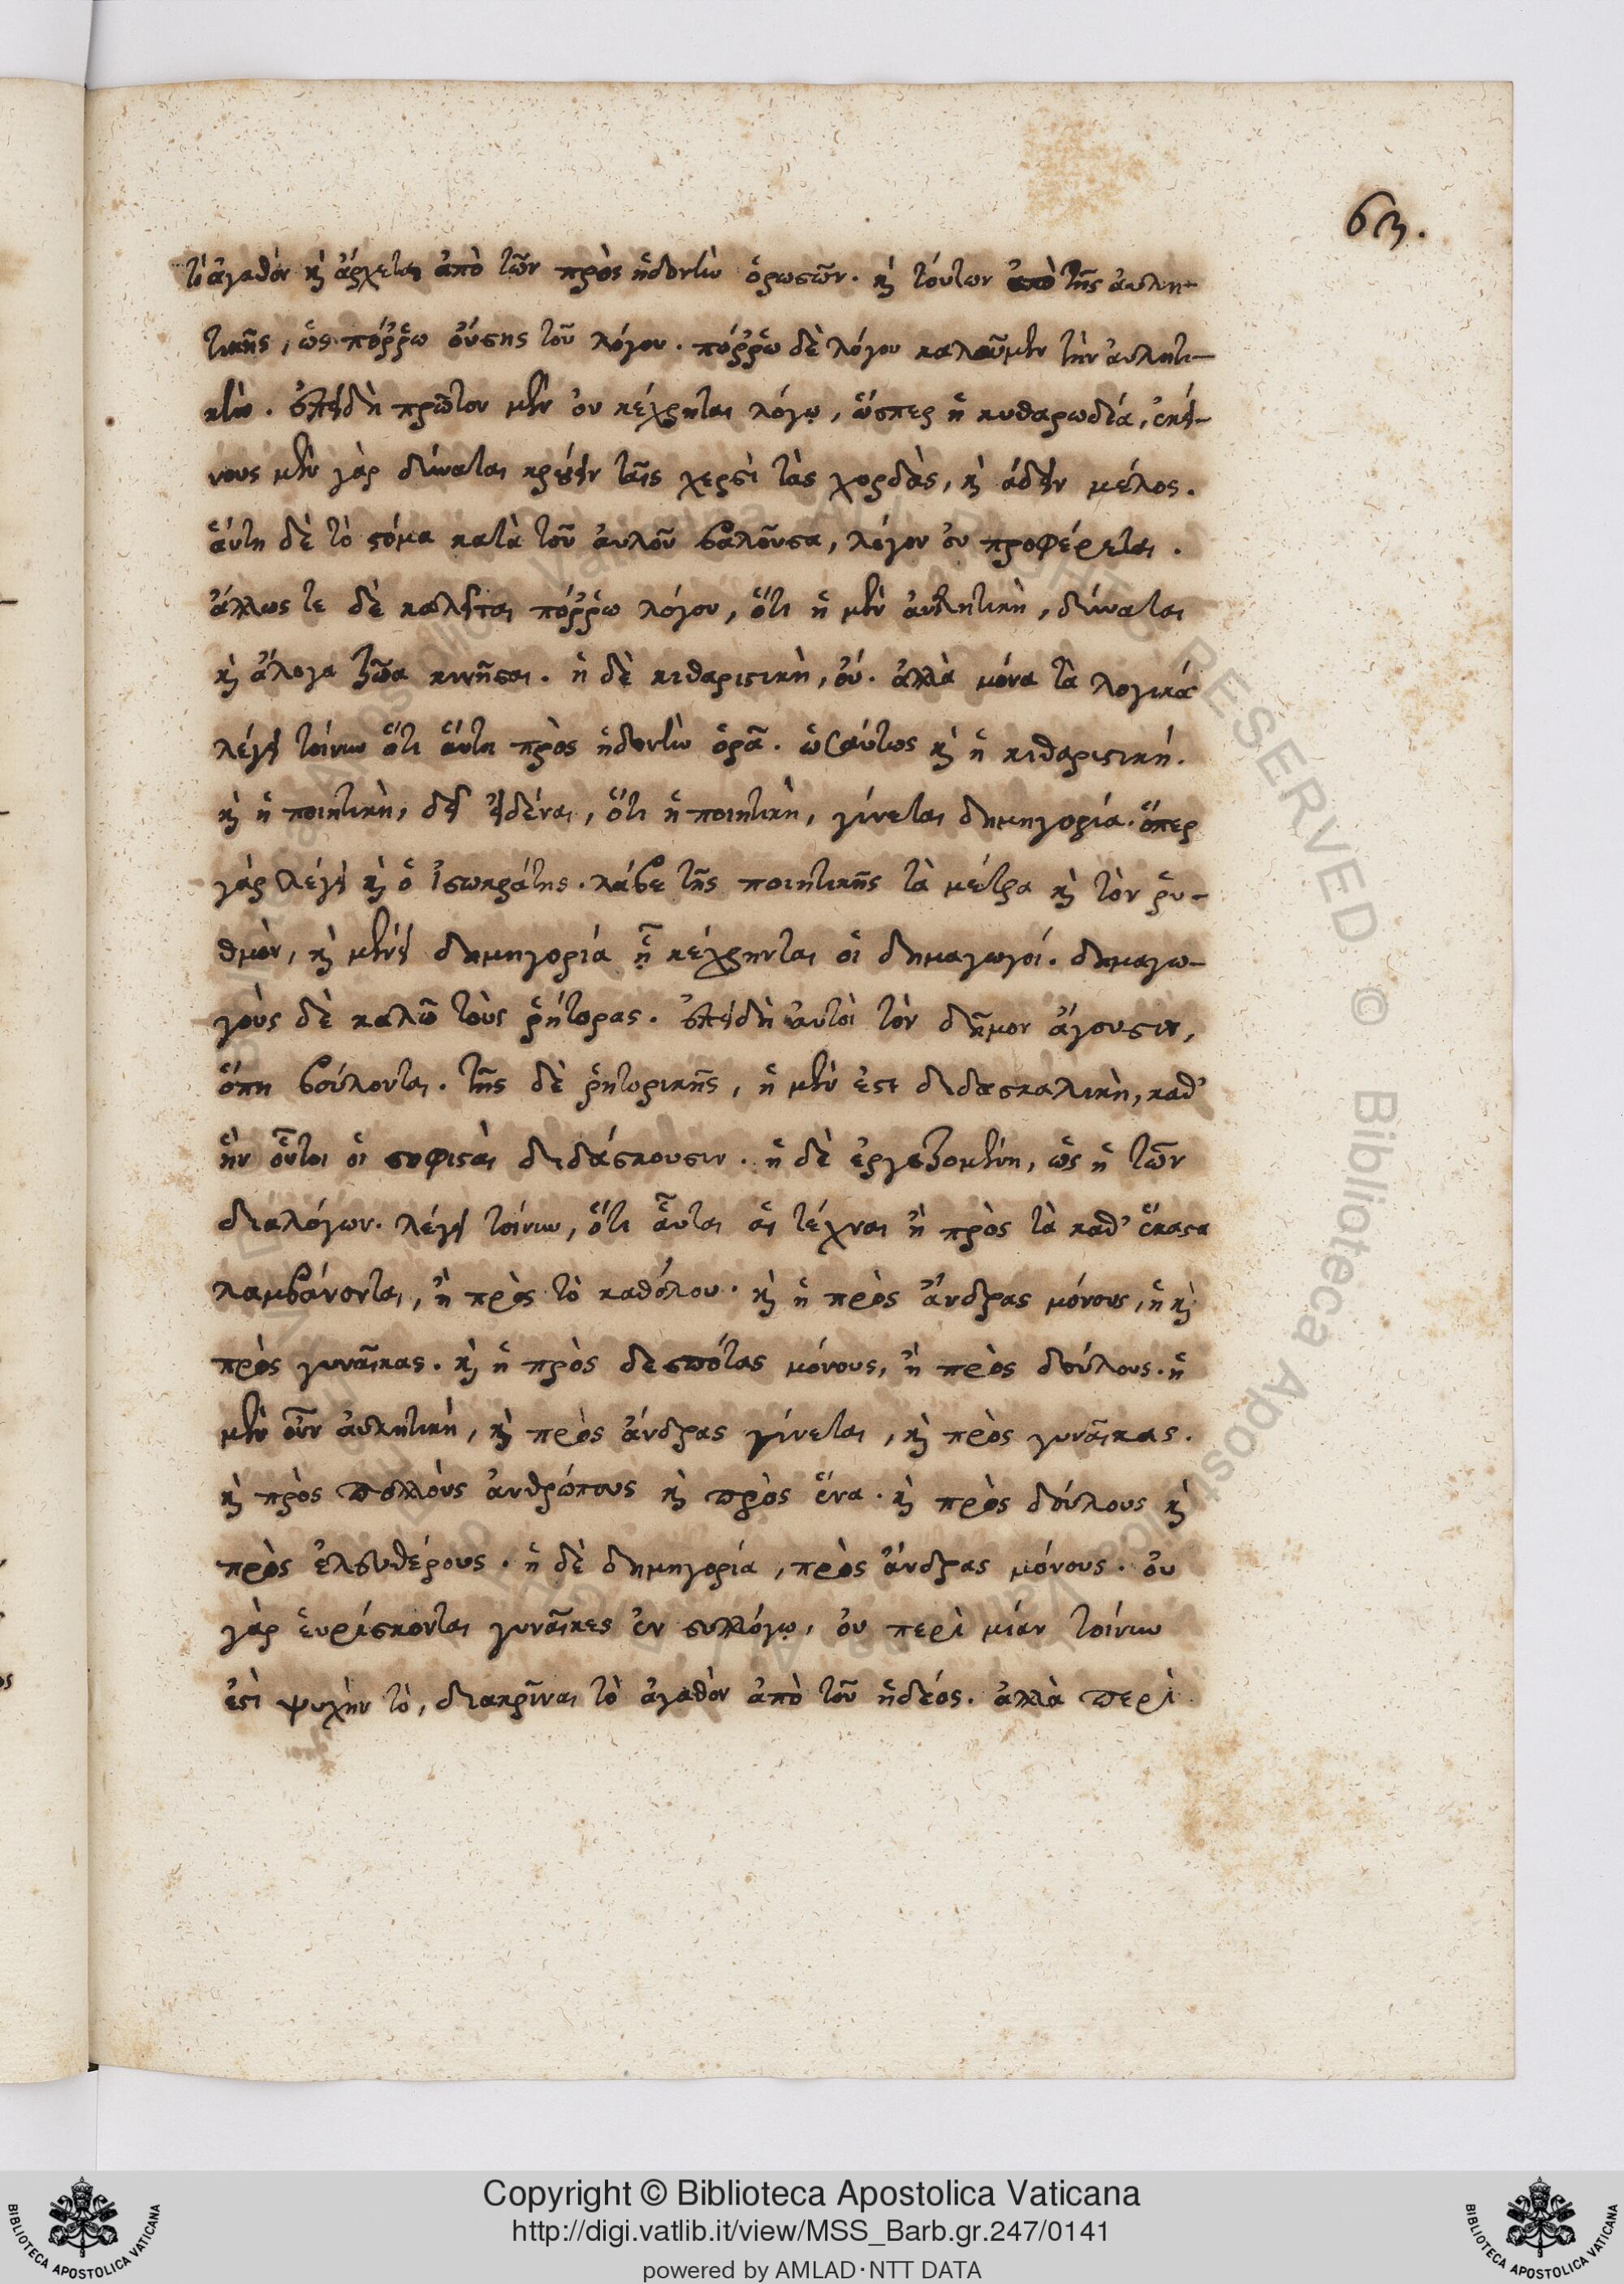 63.
τὸ ἀγαθόν κὶ ἄρχεται ἀπὸ τῶν πρὸς ἡδονὴν ὁρωσῶν. κὶ τούτων ἀπὸ τῆς αὐλη-
τικῆς, ὡς πόρρω οὔσης τοῦ λόγου. πόρρω δὲ λόγου καλοῦμεν τὴν αὐλητι-
κὴν. ἐπειδὴ πρῶτον μὲν οὐ κέχρηται λόγῳ, ὥσπερ ἡ κυθαρωδία, ἐκεί-
νους μὲν γὰρ δύναται κρούειν ταῖς χερσὶ τὰς χορδὰς, κὶ ἄδειν μέλος.
ἅυτη δὲ τὸ στόμα κατὰ τοῦ ἀυλοῦ βαλοῦσα, λόγον ὀυ προφέρεται.
ἄλλως τε δὲ καλεῖται πόρρω λόγου, ὅτι ἡ μὲν ἀυλητικὴ, δύναται
κὶ ἄλογα ζῶα κινῆσαι. ἡ δὲ κιθαριστικὴ, ὀύ. ἀλλὰ μόνα τὰ λογικά
λέγει τοίνυν ὅτι ἅυτη πρὸς ἡδονὴν ὁρᾶ. ὡσαύτως κὶ ἡ κιθαριστική.
κὶ ἡ ποιητικὴ, δεῖ εἰδέναι, ὅτι ἡ ποιητικὴ, γίνεται δημηγορία. ὅπερ
γὰρ λέγει κὶ ὁ Ἰσωκράτης. λάβε τῆς ποιητικῆς τὰ μέτρα κὶ τὸν ῥυ-
θμὸν, κὶ μένει δημηγορία ᾗ κέχρηνται οἱ δημαγωγοί. δημαγω-
γοὺς δὲ καλῶ τοὺς ῥήτορας. ἐπειδὴ ἀυτοὶ τὸν δῆμον ἄγουσιν,
ὅπη βούλονται. τῆς δὲ ῥητορικῆς, ἡ μὲν ἐστι διδασκαλικὴ, καθ'
ἣν οὗτοι οἱ σοφισταὶ διδάσκουσιν. ἡ δὲ ἐργαζομένη, ὡς ἡ τῶν
διαλόγων. λέγει τοίνυν, ὅτι ἇυται ἁι τέχναι ἢ πρὸς τὰ καθ' ἕκαστα
λαμβάνονται, ἢ πρὸς τὸ καθόλου. κὶ ἢ πρὸς ἄνδρας μόνους, ἢ κὶ
πρὸς γυναῖκας. κὶ ἢ πρὸς δεσπότας μόνους, ἢ πρὸς δούλους. ἡ
μὲν οὖν ἀυλητική, κὶ πρὸς ἄνδρας γίνεται, κὶ πρὸς γυναῖκας.
κὶ πρὸς πολλοὺς ἀνθρώπους κὶ πρὸς ἕνα. κὶ πρὸς δούλους κὶ
πρὸς ἐλευθέρους. ἡ δὲ δημηγορία, πρὸς ἄνδρας μόνους. ὀυ
γὰρ ἑυρίσκονται γυναῖκες ἐν συλλόγῳ, ὀυ περὶ μίαν τοίνυν
ἐστὶ ψυχὴν τὸ, διακρῖναι τὸ ἀγαθὸν ἀπὸ τοῦ ἡδέος. ἀλλὰ περὶ
Copyright © Biblioteca Apostolica Vaticana
http://digi.vatlib.it/view/MSS_Barb.gr.247/0141
powered by AMLAD·NTT DATA